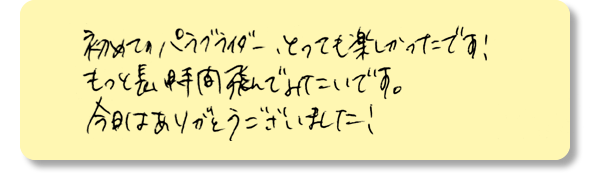 初めてのパラグライダー、とっても楽しかったです!
もっと長い時間飛んでみたいです。
今日はありがとうございました!